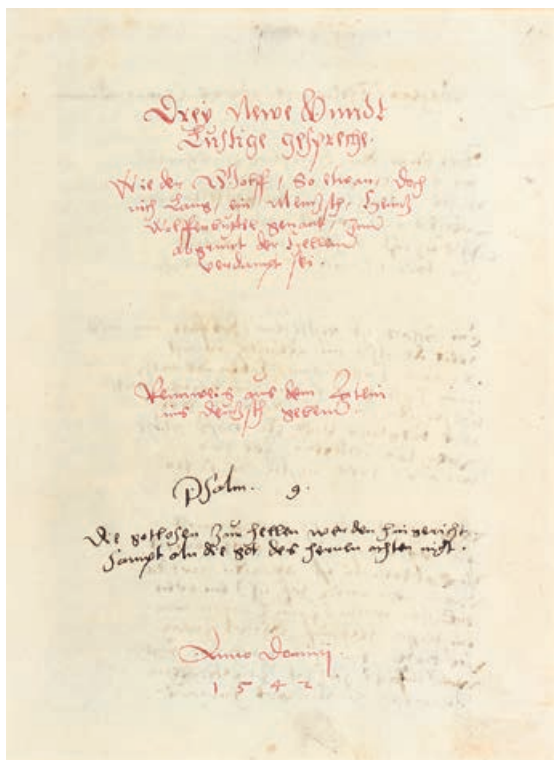 Drey Newe Vnndt
Lustige gespreche.
Wie der Wolff / So etwan / doch
nich Lang / ein Mensch / Heintz
Wolffenbuttel genant / zum
abgrunt der Hellen
verdampt sei.
Reimweis aus dem Latein
ins deutzsch geben
Psalm. 9.
Die gotlosen zur hellen werden hingericht
sampt aln die got des herren achten nicht.
Anno Domini.
1 5 4 2